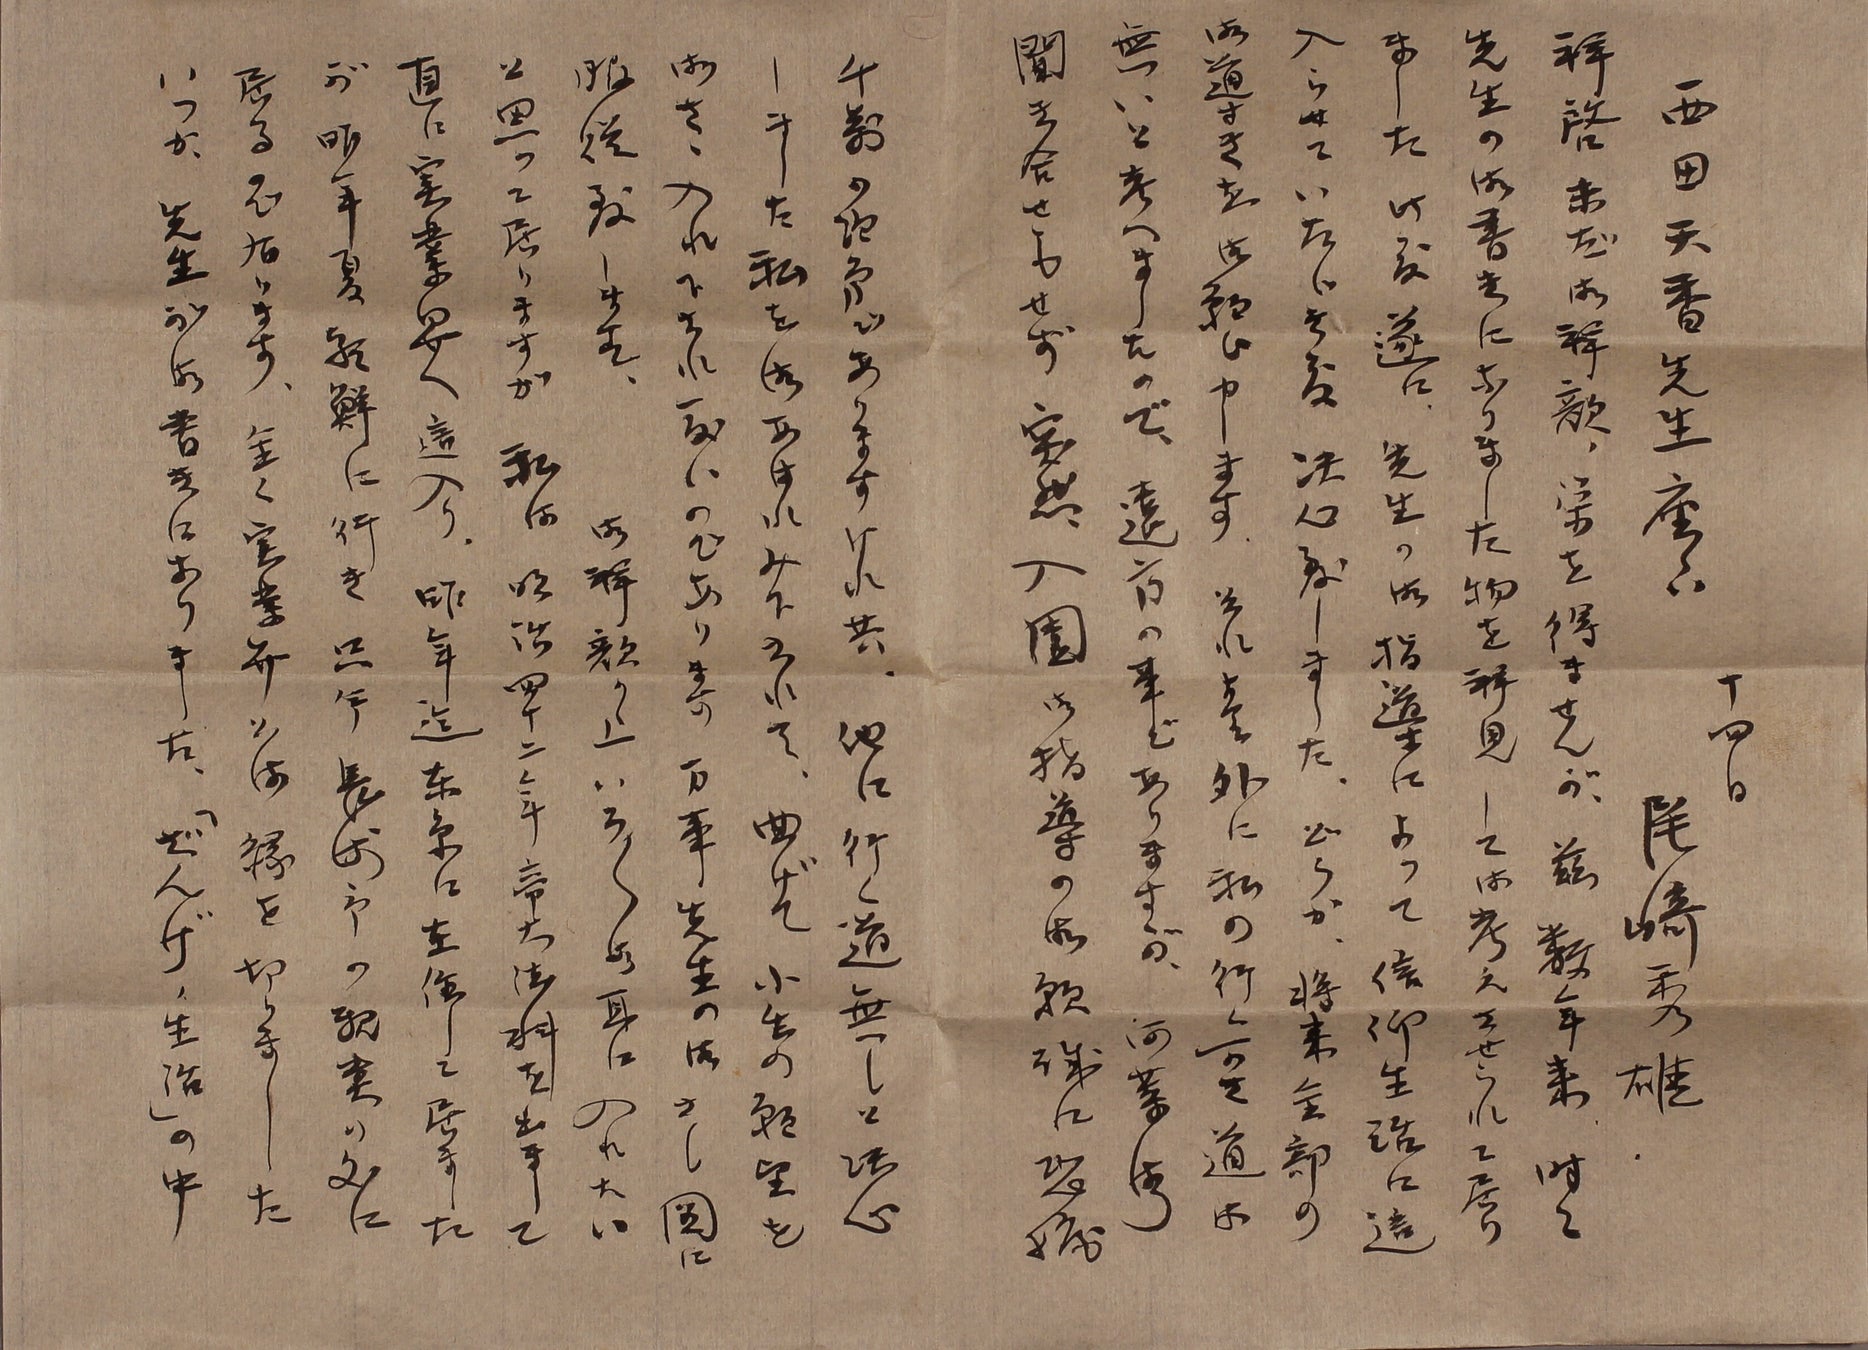 十四日
尾崎秀雄
西田天香先生座下
拝啓 未だ御拝顔、栄を得ませんが、茲数年来、時々
先生の御書きになりました物を拝見しては考えさせられて居り
ました 此度遂に、先生の御指導によって信仰生活に這
入らせていたゞき度 決心致しました、どうか、将来全部の
御導きを御願ひ申します、それ以外に私の行く可き道は
無いと考へましたので、遠方の事でありますが、何等御
聞き合せもせず 突然、入園御指導の御願 誠に恐縮
千万の次第であります けれ共、他に行く道無しと決心
しました私を御あはれみ下されて、曲げて小生の願望を
御きゝ入れ下され度いのであります 万事先生の御さし図に
服従致します、 御拝顔の上いろ〱御耳に入れたい
と思って居りますが 私は 明治四十二年帝大法科を出まして
直に実業界へ這入り、昨年迄東京に在住して居ました
が昨年夏朝鮮に行き 只今 長州の の
居るのであります、全く実業界とは縁を切りました
いつか、先生が御書きになりました、「ざんげ、生活」の中